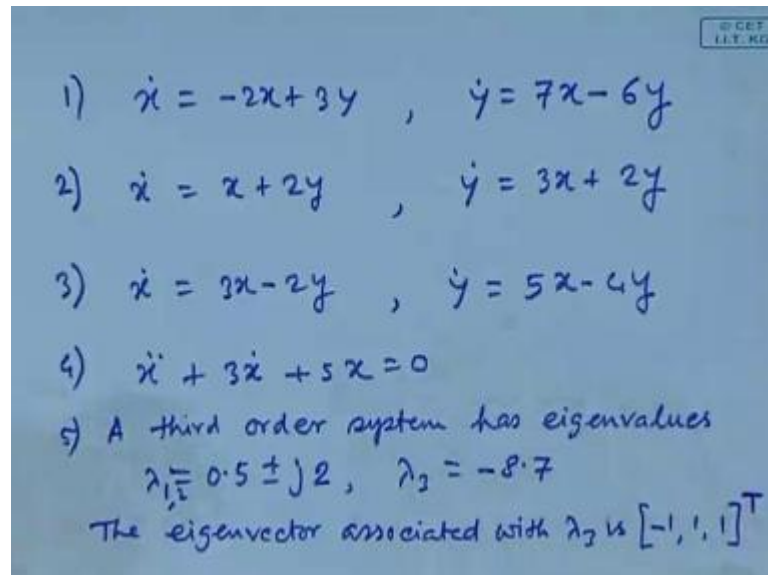 © CET
I.I.T. KG
1) ẋ = -2x + 3y , ẏ = 7x - 6y
2) ẋ = x + 2y , ẏ = 3x + 2y
3) ẋ = 3x - 2y , ẏ = 5x - 4y
4) ẍ + 3ẋ + 5x = 0
5) A third order system has eigenvalues
λ₁,₂ = 0.5 ± j2, λ₃ = -8.7
The eigenvector associated with λ₃ is [-1, 1, 1]ᵀ